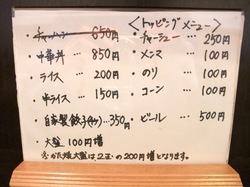 ・チャーハン … 650円
・中華丼 … 850円
・ライス … 200円
・半ライス … 150円
・自家製餃子 …350円
・大盛 100円増
※かた焼大盛は、2玉の200円増となります。
<トッピングメニュー>
・チャーシュー … 250円
・メンマ … 100円
・のり … 100円
・コーン … 100円
・ビール … 500円